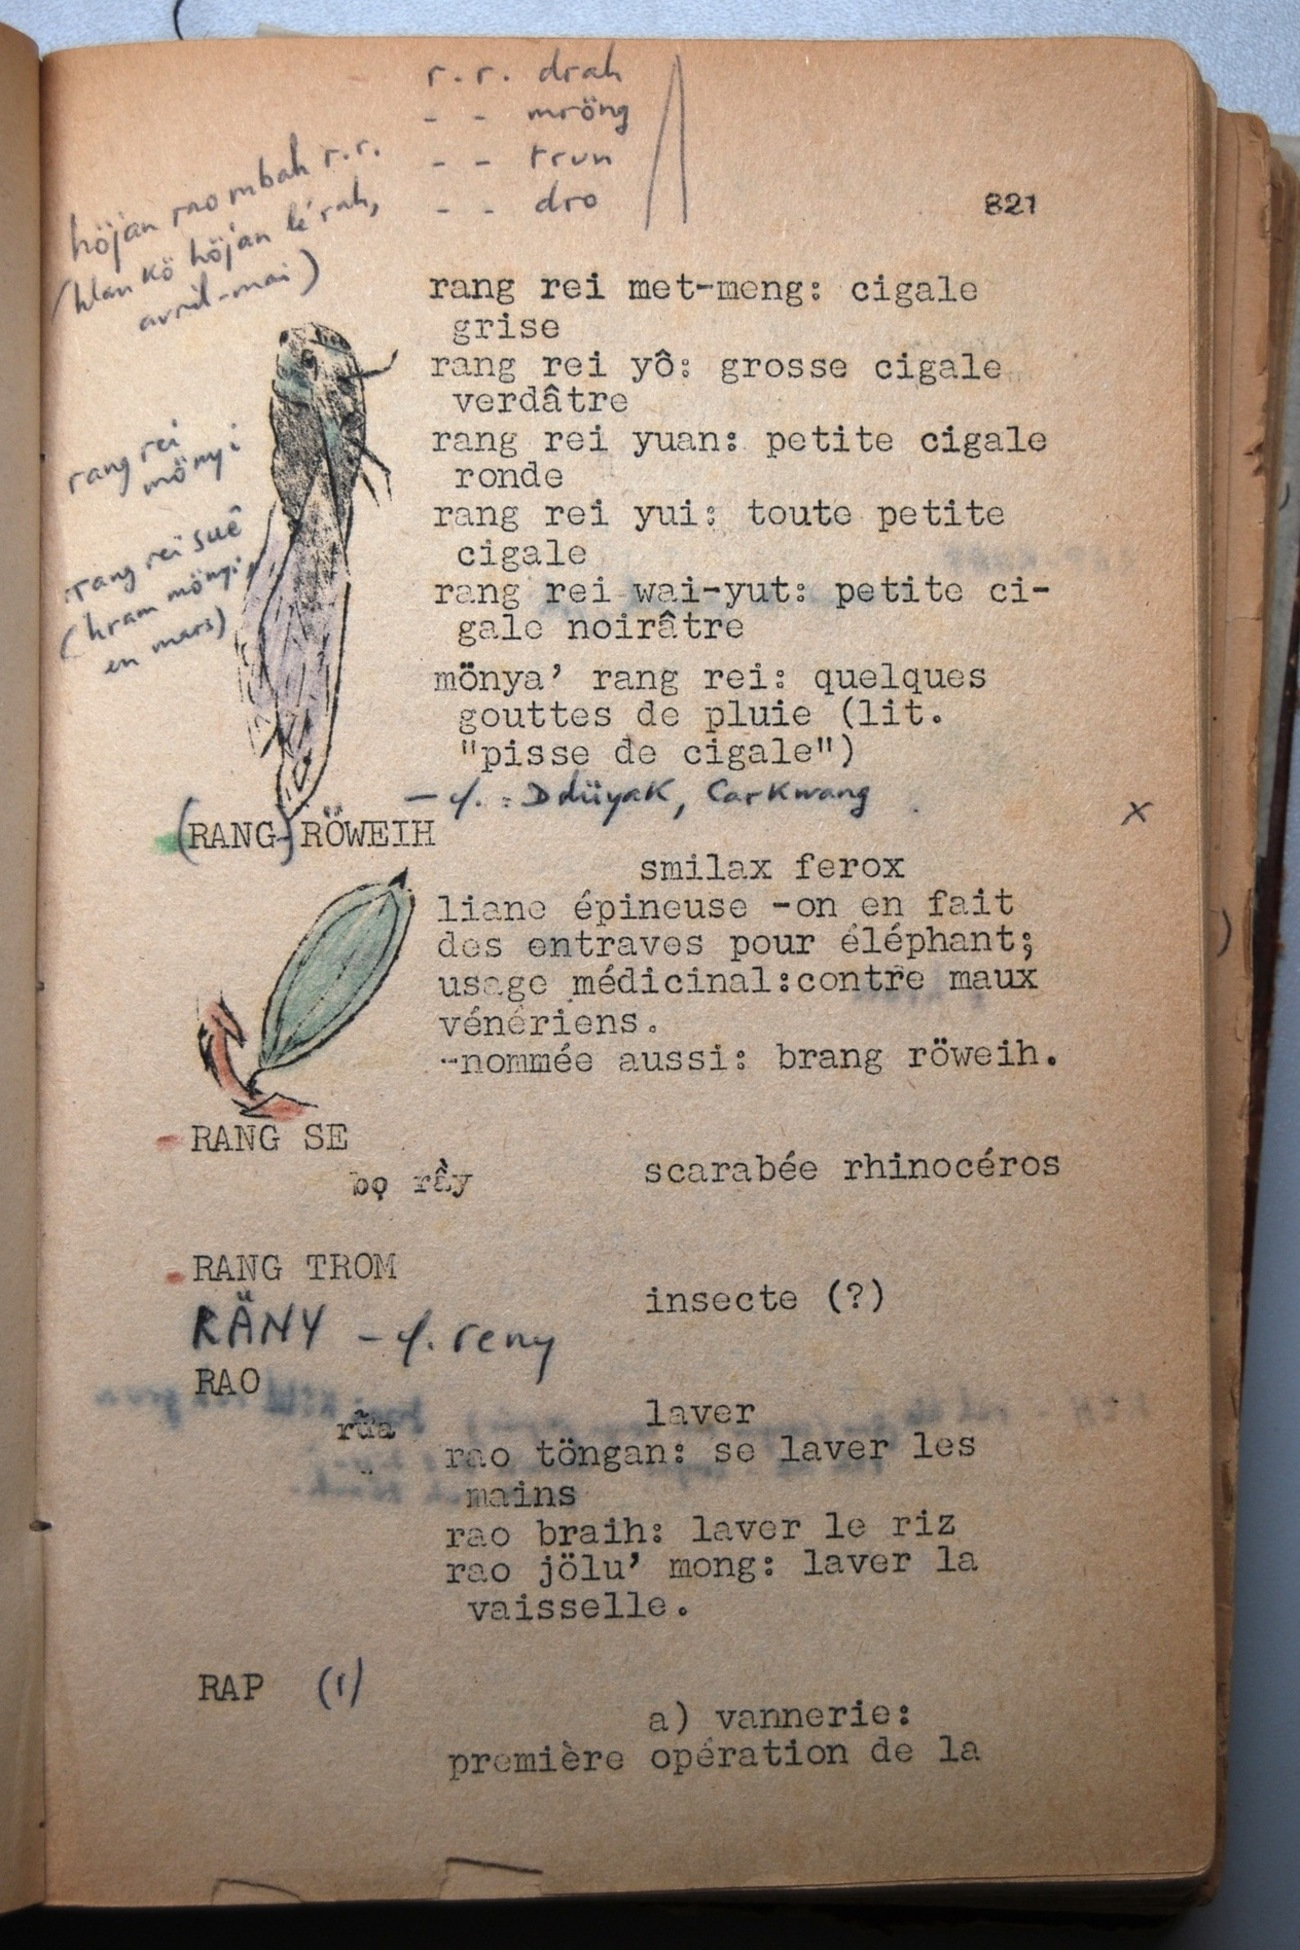 r.r. drah
- - mröng
- - trun
- - dro
höjan rao mbah r.r.
(hlan kö höjan lé rah,
avril-mai)
821
rang rei met-meng: cigale
grise
rang rei yô: grosse cigale
verdâtre
rang rei yuan: petite cigale
ronde
rang rei
mönyi
rang rei yui: toute petite
cigale
rang rei suê
(hram mönyi,
en mars)
rang rei wai-yut: petite ci-
gale noirâtre
mönya’ rang rei: quelques
gouttes de pluie (lit.
"pisse de cigale")
- cf. : Ddüyak, Carkwang
x
(RANG-)RÖWEIH
smilax ferox
liane épineuse -on en fait
des entraves pour éléphant;
usage médicinal:contre maux
vénériens.
-nommée aussi: brang röweih.
RANG SE
bọ rầy
scarabée rhinocéros
RANG TROM
insecte (?)
RÄNY - cf. reny
RAO
rữa
laver
rao töngan: se laver les
mains
rao braih: laver le riz
rao jölu’ mong: laver la
vaisselle.
RAP (1)
a) vannerie:
première opération de la